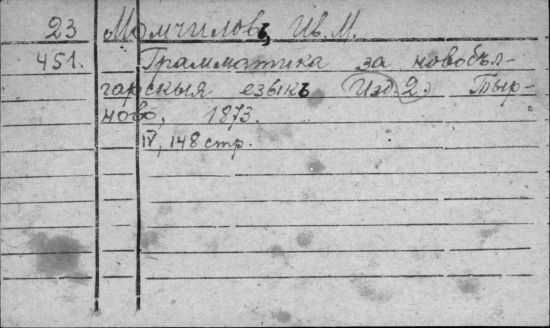 23 Момчиловъ, Ив. М.
451. Грамматика за новобъл-
гарскыя езыкъ Изд. 2. Тыр-
ново, 1873.
IV, 148 стр.